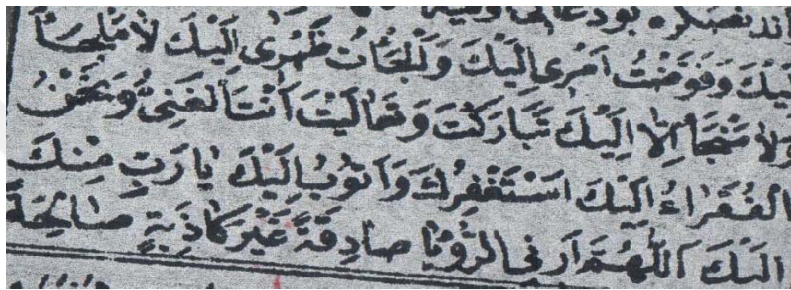 اليك وفوضت امرى اليك وللجأت ظهرى اليك لا ملجأ
ولا منجأ الا اليك تباركت وتعاليت انت الغنى ونحن
الفقراء اليك استغفرك واتوب اليك يا رب منك
اليك اللهم ارنى الرؤيا صادقة غير كاذبة صالحة